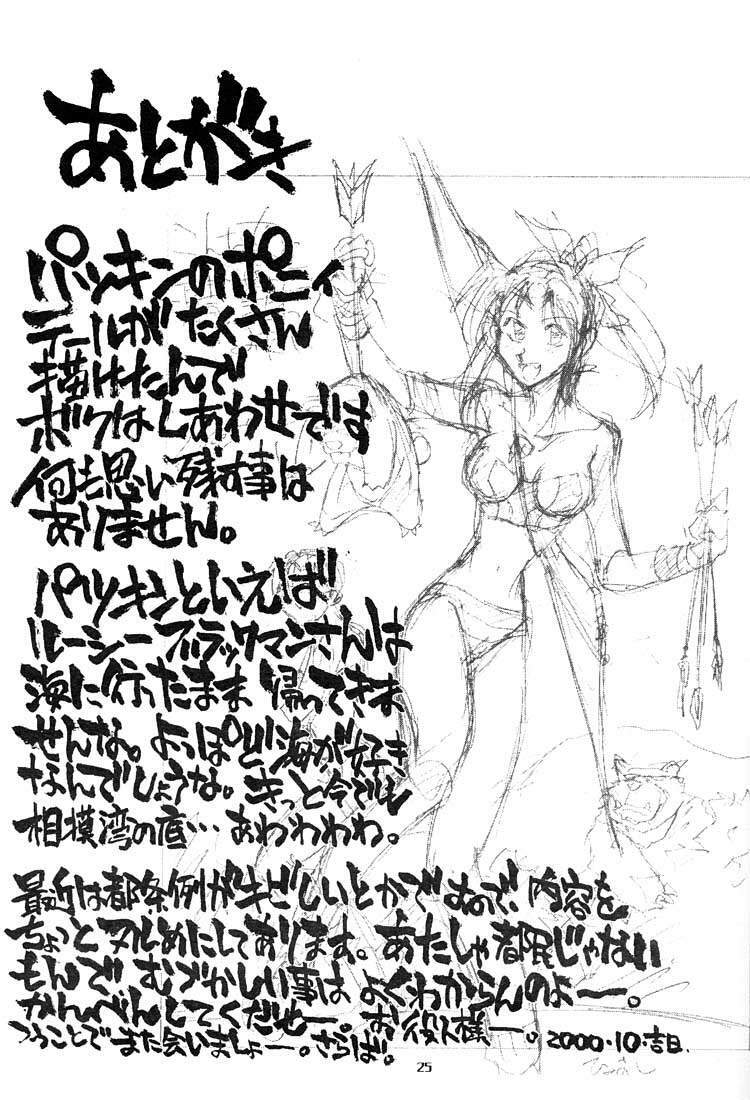 あとがき
パツキンのポニィ
テールがたくさん
描けたんで
ボクはしあわせです
何も思い残す事は
ありません。
パツキンといえば
ルーシーブラックマンさんは
海に行ったまま 帰ってきま
せんな。よっぽど海が好き
なんでしょうな。きっと今でも
相模湾の底…あわわわわ。
最近は都条例がキビしいとかですので、内容を
ちょっとヌルめにしてあります。あたしゃ都民じゃない
もんで むづかしい事は よくわからんのよー。
かんべんしてくだせー。お役人様ー。
つうことで また会いましょー。さらば。
2000.10.吉日.
25